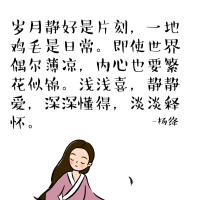 岁月静好是片刻，一地
鸡毛是日常。即使世界
偶尔薄凉，内心也要繁
花似锦。浅浅喜，静静
爱，深深懂得，淡淡释
怀。 -杨绛